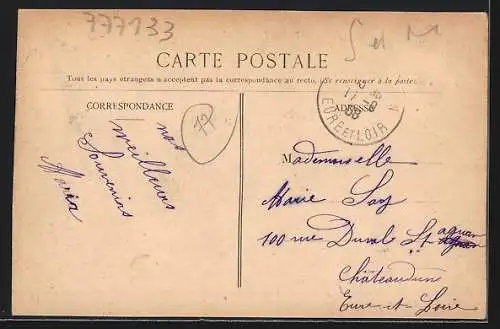 777133
S et M
CARTE POSTALE
Tous les pays étrangers n'acceptent pas la correspondance au recto. (Se renseigner à la poste)
CORRESPONDANCE
ADRESSE
77
17 -8
08
EURE ET LOIR
nos
meilleurs
Souvenirs
Maria
Mademoiselle
Marie
100 rue
Châteaudun
Eure et Loire